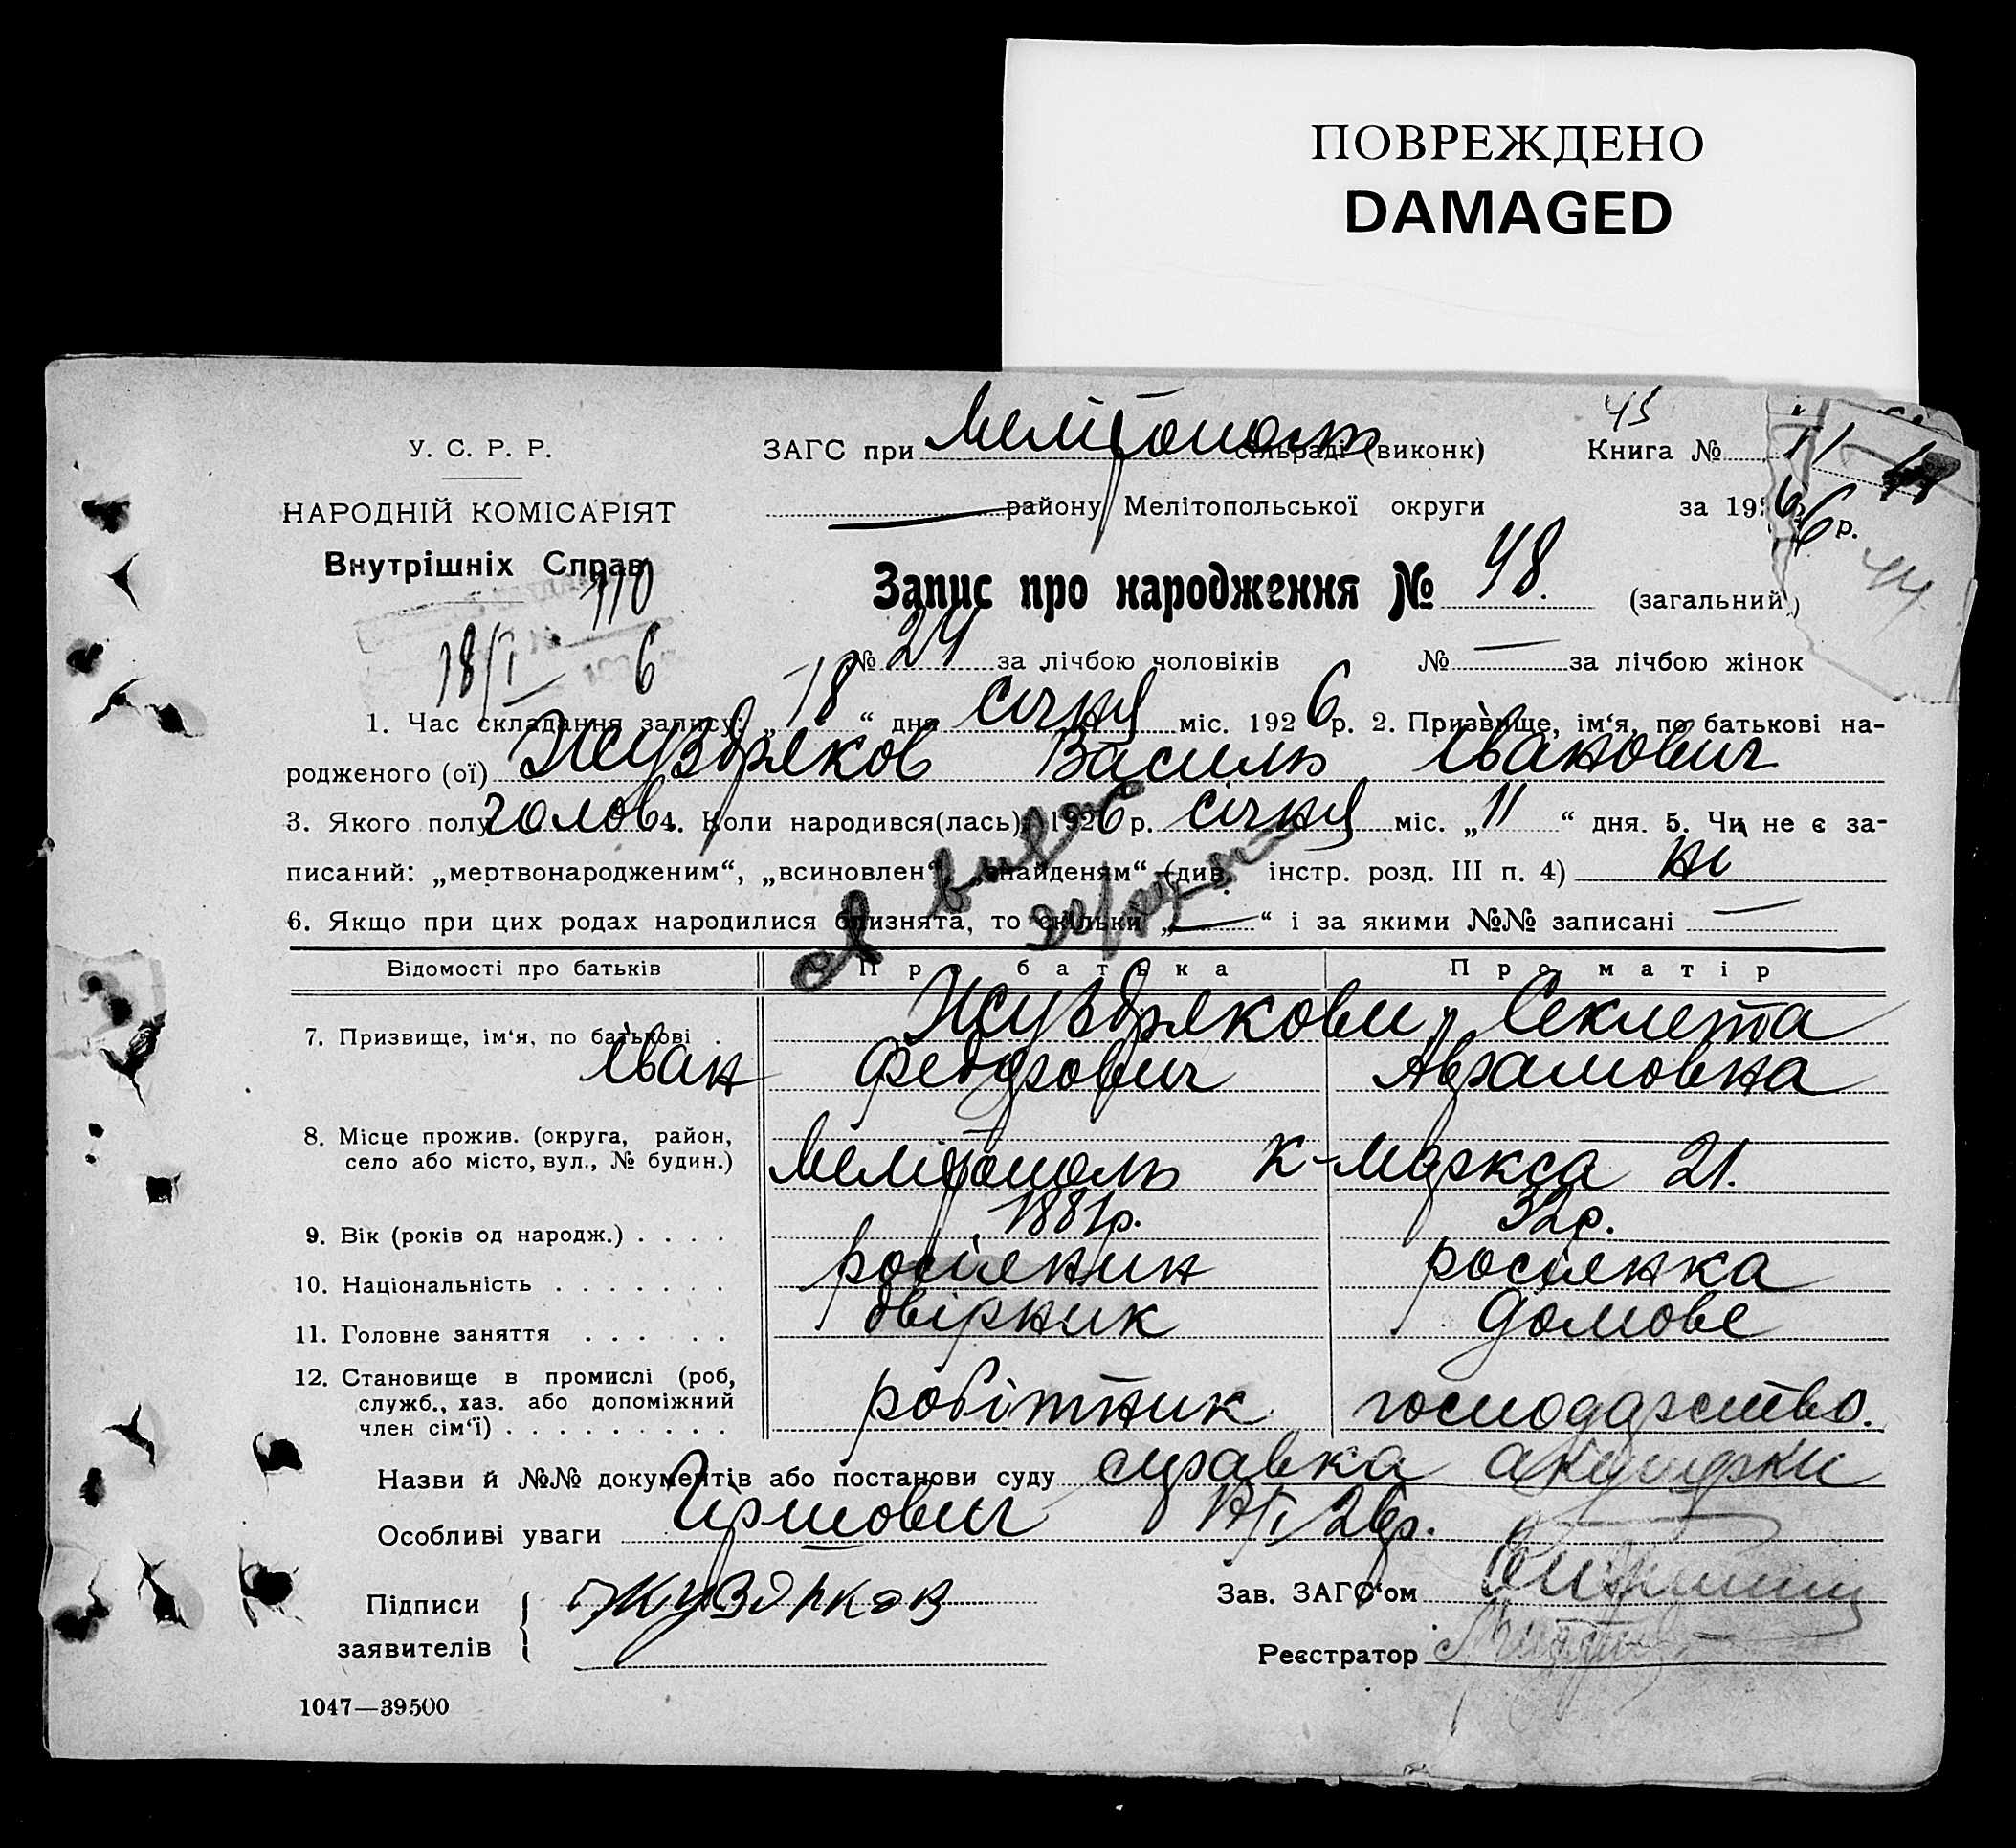 ПОВРЕЖДЕНО
DAMAGED
45
У. С. Р. Р. ЗАГС при Мелітополь сільраді (виконк) Книга № 11
НАРОДНІЙ КОМІСАРІЯТ — району Мелітопольської округи за 1926 6 р.
Внутрішніх Справ
110
Запис про народження № 48. (загальний)
44
18/I — 6
№ 24 за лічбою чоловіків № — за лічбою жінок
1. Час складання запису: „ 18 “ дня січня міс. 1926 р. 2. Призвище, ім‘я, по батькові на-
родженого (ої) Жуздряков Василь Іванович
3. Якого полу голов. 4. Коли народився(лась): 1926 р. січня міс. „ 11 “ дня. 5. Чи не є за-
писаний: „мертвонародженим“, „всиновлен“, „знайденям“ (див. інстр. розд. III п. 4) ні
6. Якщо при цих родах народилися близнята, то скільки „ — “ і за якими №№ записані —
Відомості про батьків Про батька Про матір
7. Призвище, ім‘я, по батькові . Жуздрякови Секлета
Іван Федорович Аврамовна
8. Місце прожив. (округа, район,
село або місто, вул., № будин.) Мелітополь К-Маркса 21.
9. Вік (років од народж.) . . . . 1881р. 32р.
10. Національність . . . . . . . росіянин росіянка
11. Головне заняття . . . . . . двірник домове
12. Становище в промислі (роб,
служб., хаз. або допоміжний
член сім‘ї) . . . . . . . . . робітник господарство.
Назви й №№ документів або постанови суду справка акушерки
Особливі уваги 26р.
Підписи
заявителів
Жуздрков
Зав. ЗАГС‘ом
Реєстратор
1047—39500